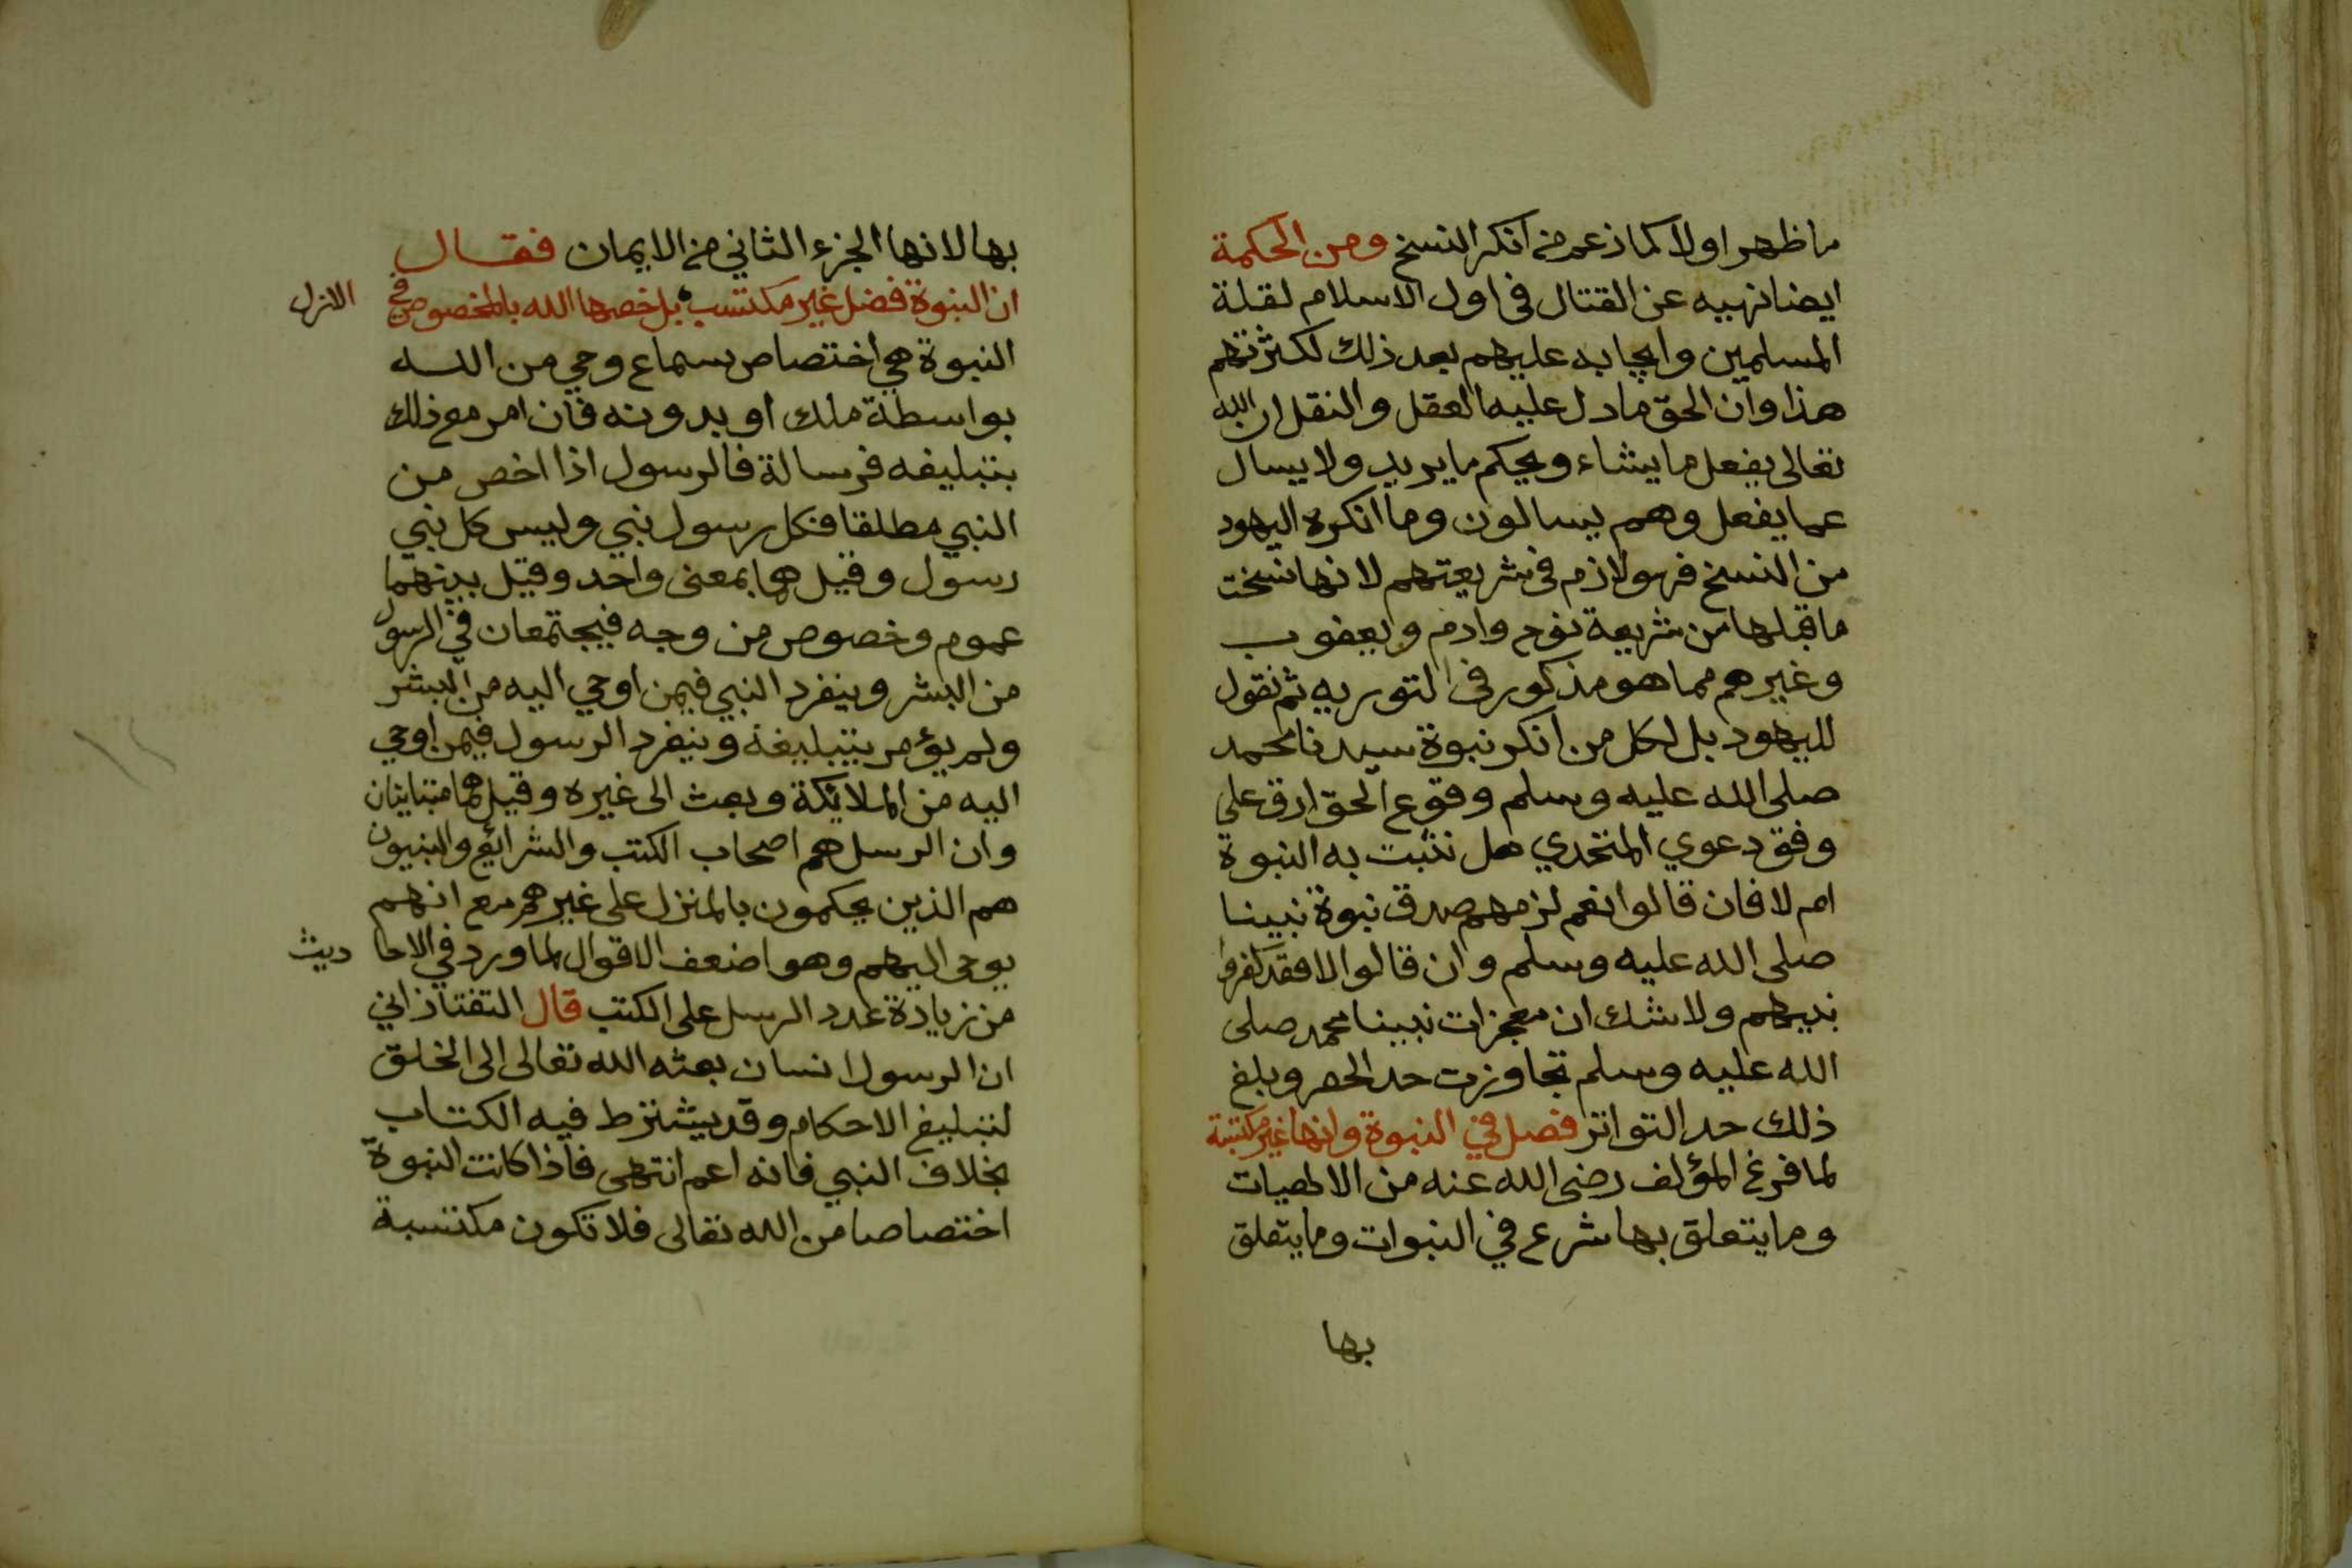 ما ظهر اولا كما زعم من انكر النسخ ومن الحكمة
ايضا نهيه عن القتال في اول الاسلام لقلة
المسلمين وايجابه عليهم بعد ذلك لكثرتهم
هذا وان الحق ما دل عليه العقل والنقل ان الله
تعالى يفعل ما يشاء ويحكم ما يريد ولا يسال
عما يفعل وهم يسالون وما انكره اليهود
من النسخ فهو لازم في شريعتهم لانها نسخت
ما قبلها من شريعة نوح وادم ويعقوب
وغيرهم مما هو مذكور في التوريه ثم نقول
لليهود بل لكل من انكر نبوة سيدنا محمد
صلى الله عليه وسلم وقوع الحق ارق على
وفق دعوي المتحدي هل تثبت به النبوة
ام لا فان قالوا نعم لزمهم صدق نبوة نبينا
صلى الله عليه وسلم وان قالوا لا فقد كفروا
نبيهم ولا شك ان معجزات نبينا محمد صلى
الله عليه وسلم تجاوزت حد الحصر وبلغ
ذلك حد التواتر فصل في النبوة وانها غير مكتسبة
لما فرغ المؤلف رضى الله عنه من الالهيات
وما يتعلق بها شرع في النبوات وما يتعلق
بها
بها لانها الجزء الثاني من الايمان فقال
ان النبوة فضل غير مكتسب بل خصها الله بالمخصوص في الازل
النبوة هي اختصاص بسماع وحي من الله
بواسطة ملك او بدونه فان امر مع ذلك
بتبليغه فرسالة فالرسول اذا اخص من
النبي مطلقا فكل رسول نبي وليس كل نبي
رسول وقيل هما بمعنى واحد وقيل بينهما
عموم وخصوص من وجه فيجتمعان في الرسول
من البشر وينفرد النبي فيمن اوحي اليه من البشر
ولم يؤمر بتبليغه وينفرد الرسول فيمن اوحي
اليه من الملايكة وبعث الى غيره وقيل هما متباينان
وان الرسل هم اصحاب الكتب والشرائع والنبيون
هم الذين يحكمون بالمنزل على غيرهم مع انهم
يوحى اليهم وهو اضعف الاقوال لما ورد في الاحا ديث
من زيادة عدد الرسل على الكتب قال التفتازاني
ان الرسول انسان بعثه الله تعالى الى الخلق
لتبليغ الاحكام وقد يشترط فيه الكتاب
بخلاف النبي فانه اعم انتهى فاذا كانت النبوة
اختصاصا من الله تعالى فلا تكون مكتسبة